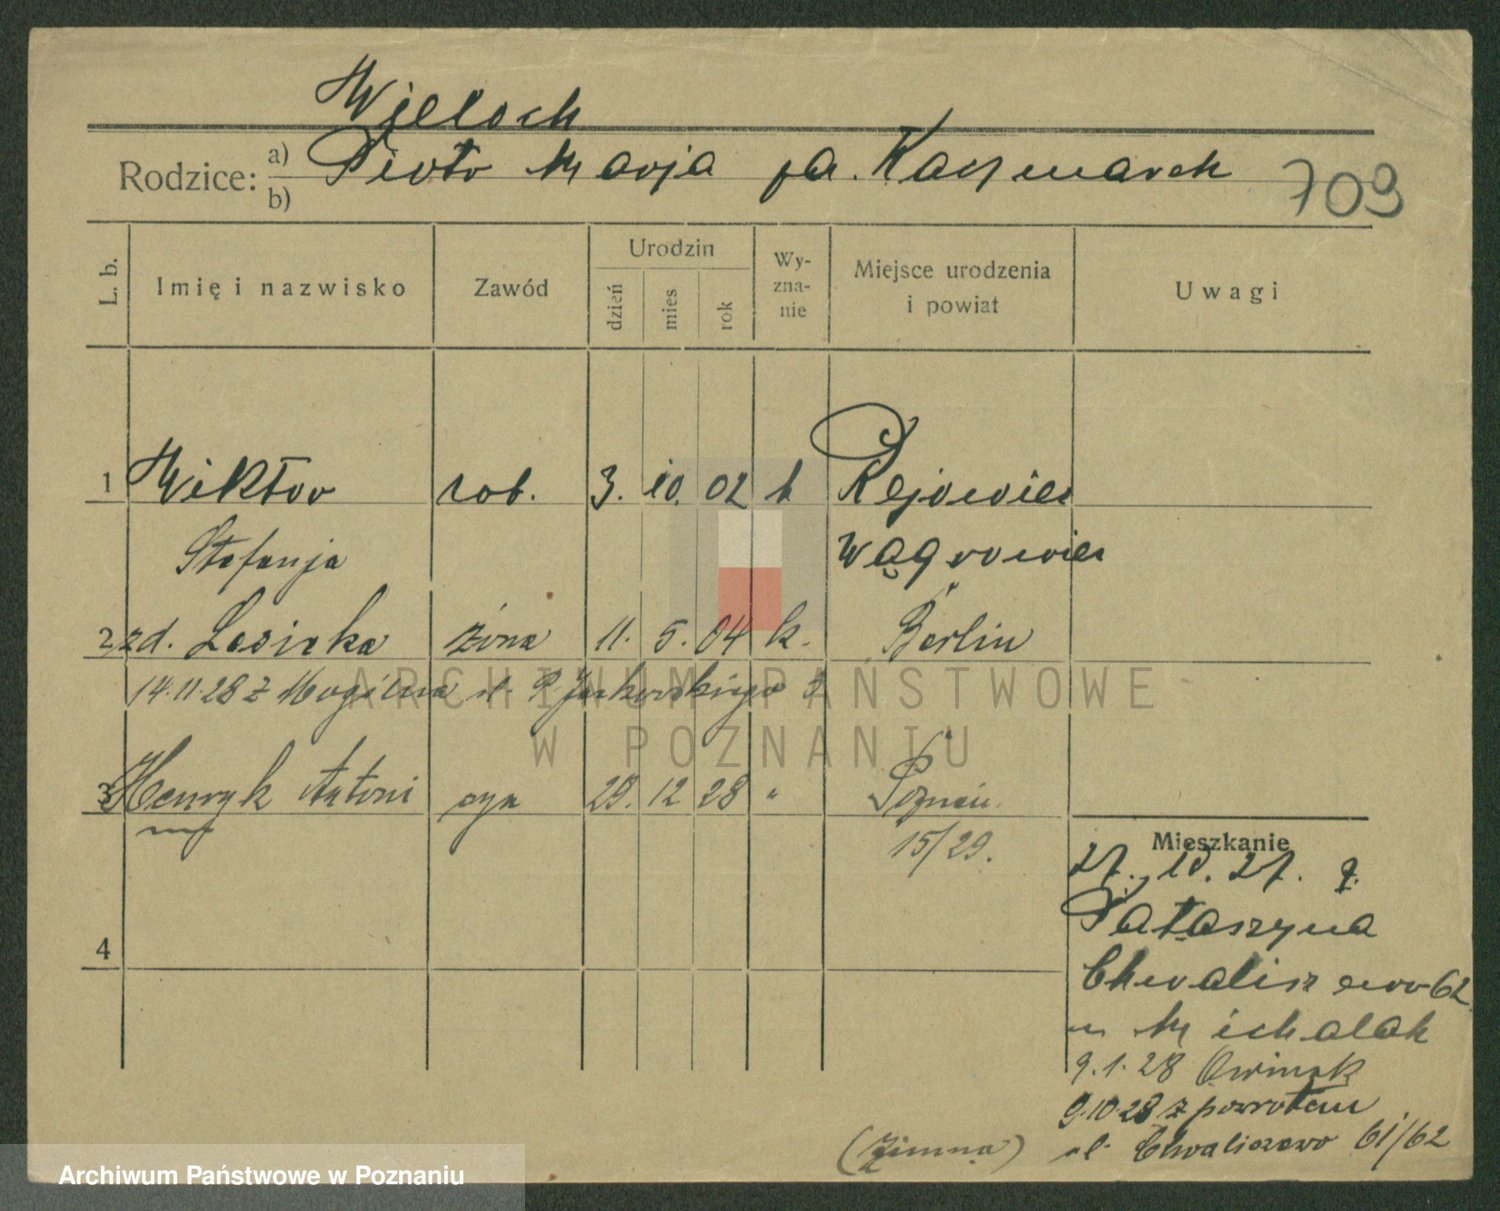 Wieloch
Rodzice: a) b) Piotr Marja za. Kaczmarek 709
L. b. Imię i nazwisko Zawód Urodzin dzień mies rok Wy-zna-nie Miejsce urodzenia i powiat Uwagi
1 Wiktor rob. 3. 10. 02 k Rejowiec
Stefanja Wągrowiec
2 zd. Lesicka żona 11. 5. 04 k. Berlin
14.11.28 z Mogilna ul. P. Jackowskiego 3
ARCHIWUM PAŃSTWOWE
W POZNANIU
3 Henryk Antoni syn 29. 12 28 " Poznań.
15/29.
Mieszkanie
27., 10. 27. z.
Pałaszyna
4
Chwaliszewo 62
u Michalak
9.1.28 Owinsk
9.10.28 z powrotem
ul. Chwaliszewo 61/62
(Zimna)
Archiwum Państwowe w Poznaniu